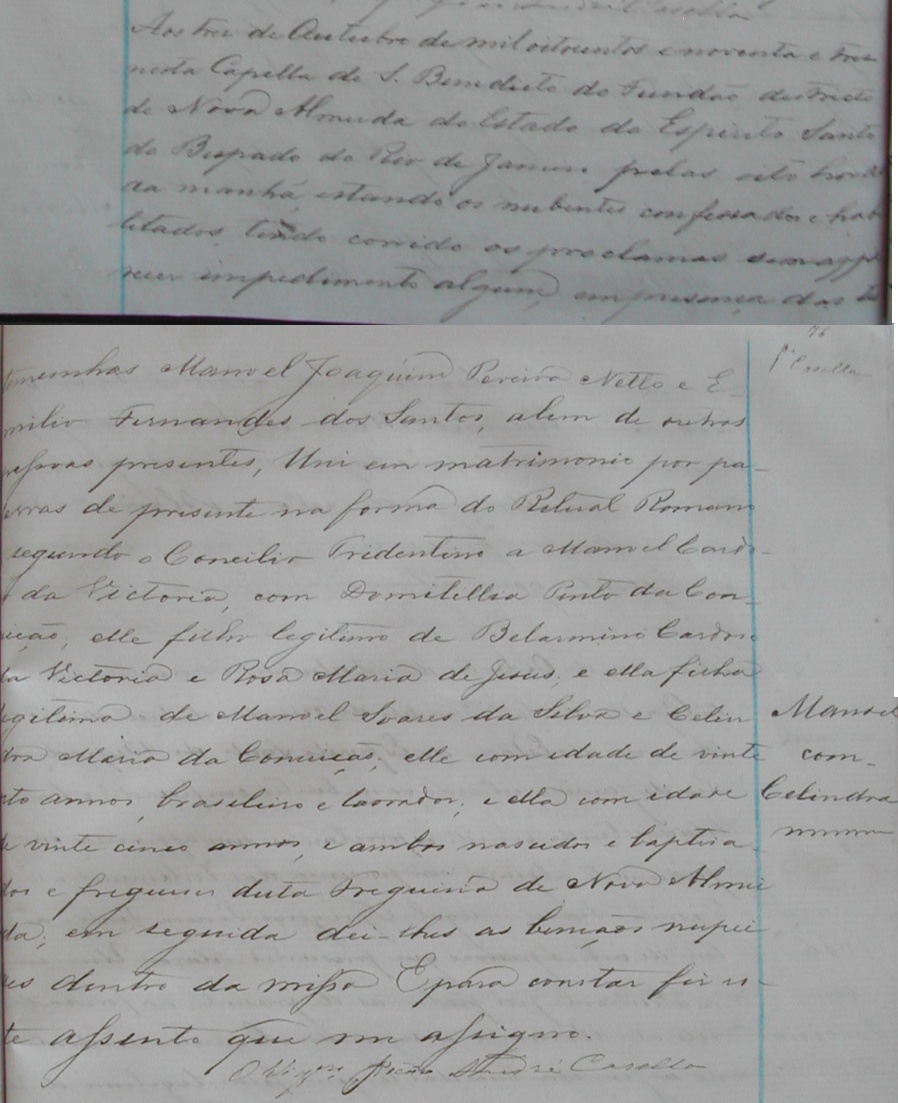 André Casella
Aos tres de Outubro de mil oitocentos e noventa e tres
nesta Capella de S. Benedicto do Fundão districto
de Nova Almeida do Estado do Espirito Santo
do Bispado do Rio de Janeiro pelas oito horas
da manhã, estando os nubentes confessados e habi
litados, tendo corrido os proclamas sem appa
recer impedimento algum, em presença das tes
temunhas Manoel Joaquim Pereira Netto e E-
milio Fernandes dos Santos, alem de outras
pessoas presentes, Uni em matrimonio por pa-
lavras de presente na forma do Ritual Romano
segundo o Concilio Tridentino a Manoel Cardo-
so da Victoria, com Domitillia Pinto da Con-
ceição, elle filho legitimo de Belarmino Cardoso
da Victoria e Rosa Maria de Jesus, e ella filha
legitima de Manoel Soares da Silva e Celin
dra Maria da Conceição, elle com idade de vinte
oito annos, brasileiro e lavrador, e ella com idade
de vinte cinco annos, e ambos nascidos e baptisa-
dos e freguezes desta Freguezia de Nova Almei
da; em seguida dei-lhes as bençãos nupci
aes dentro da missa E para constar fiz es-
te assento que me assigno.
O Vigro. André Casella
76
Casella
Manoel
com
Celindra